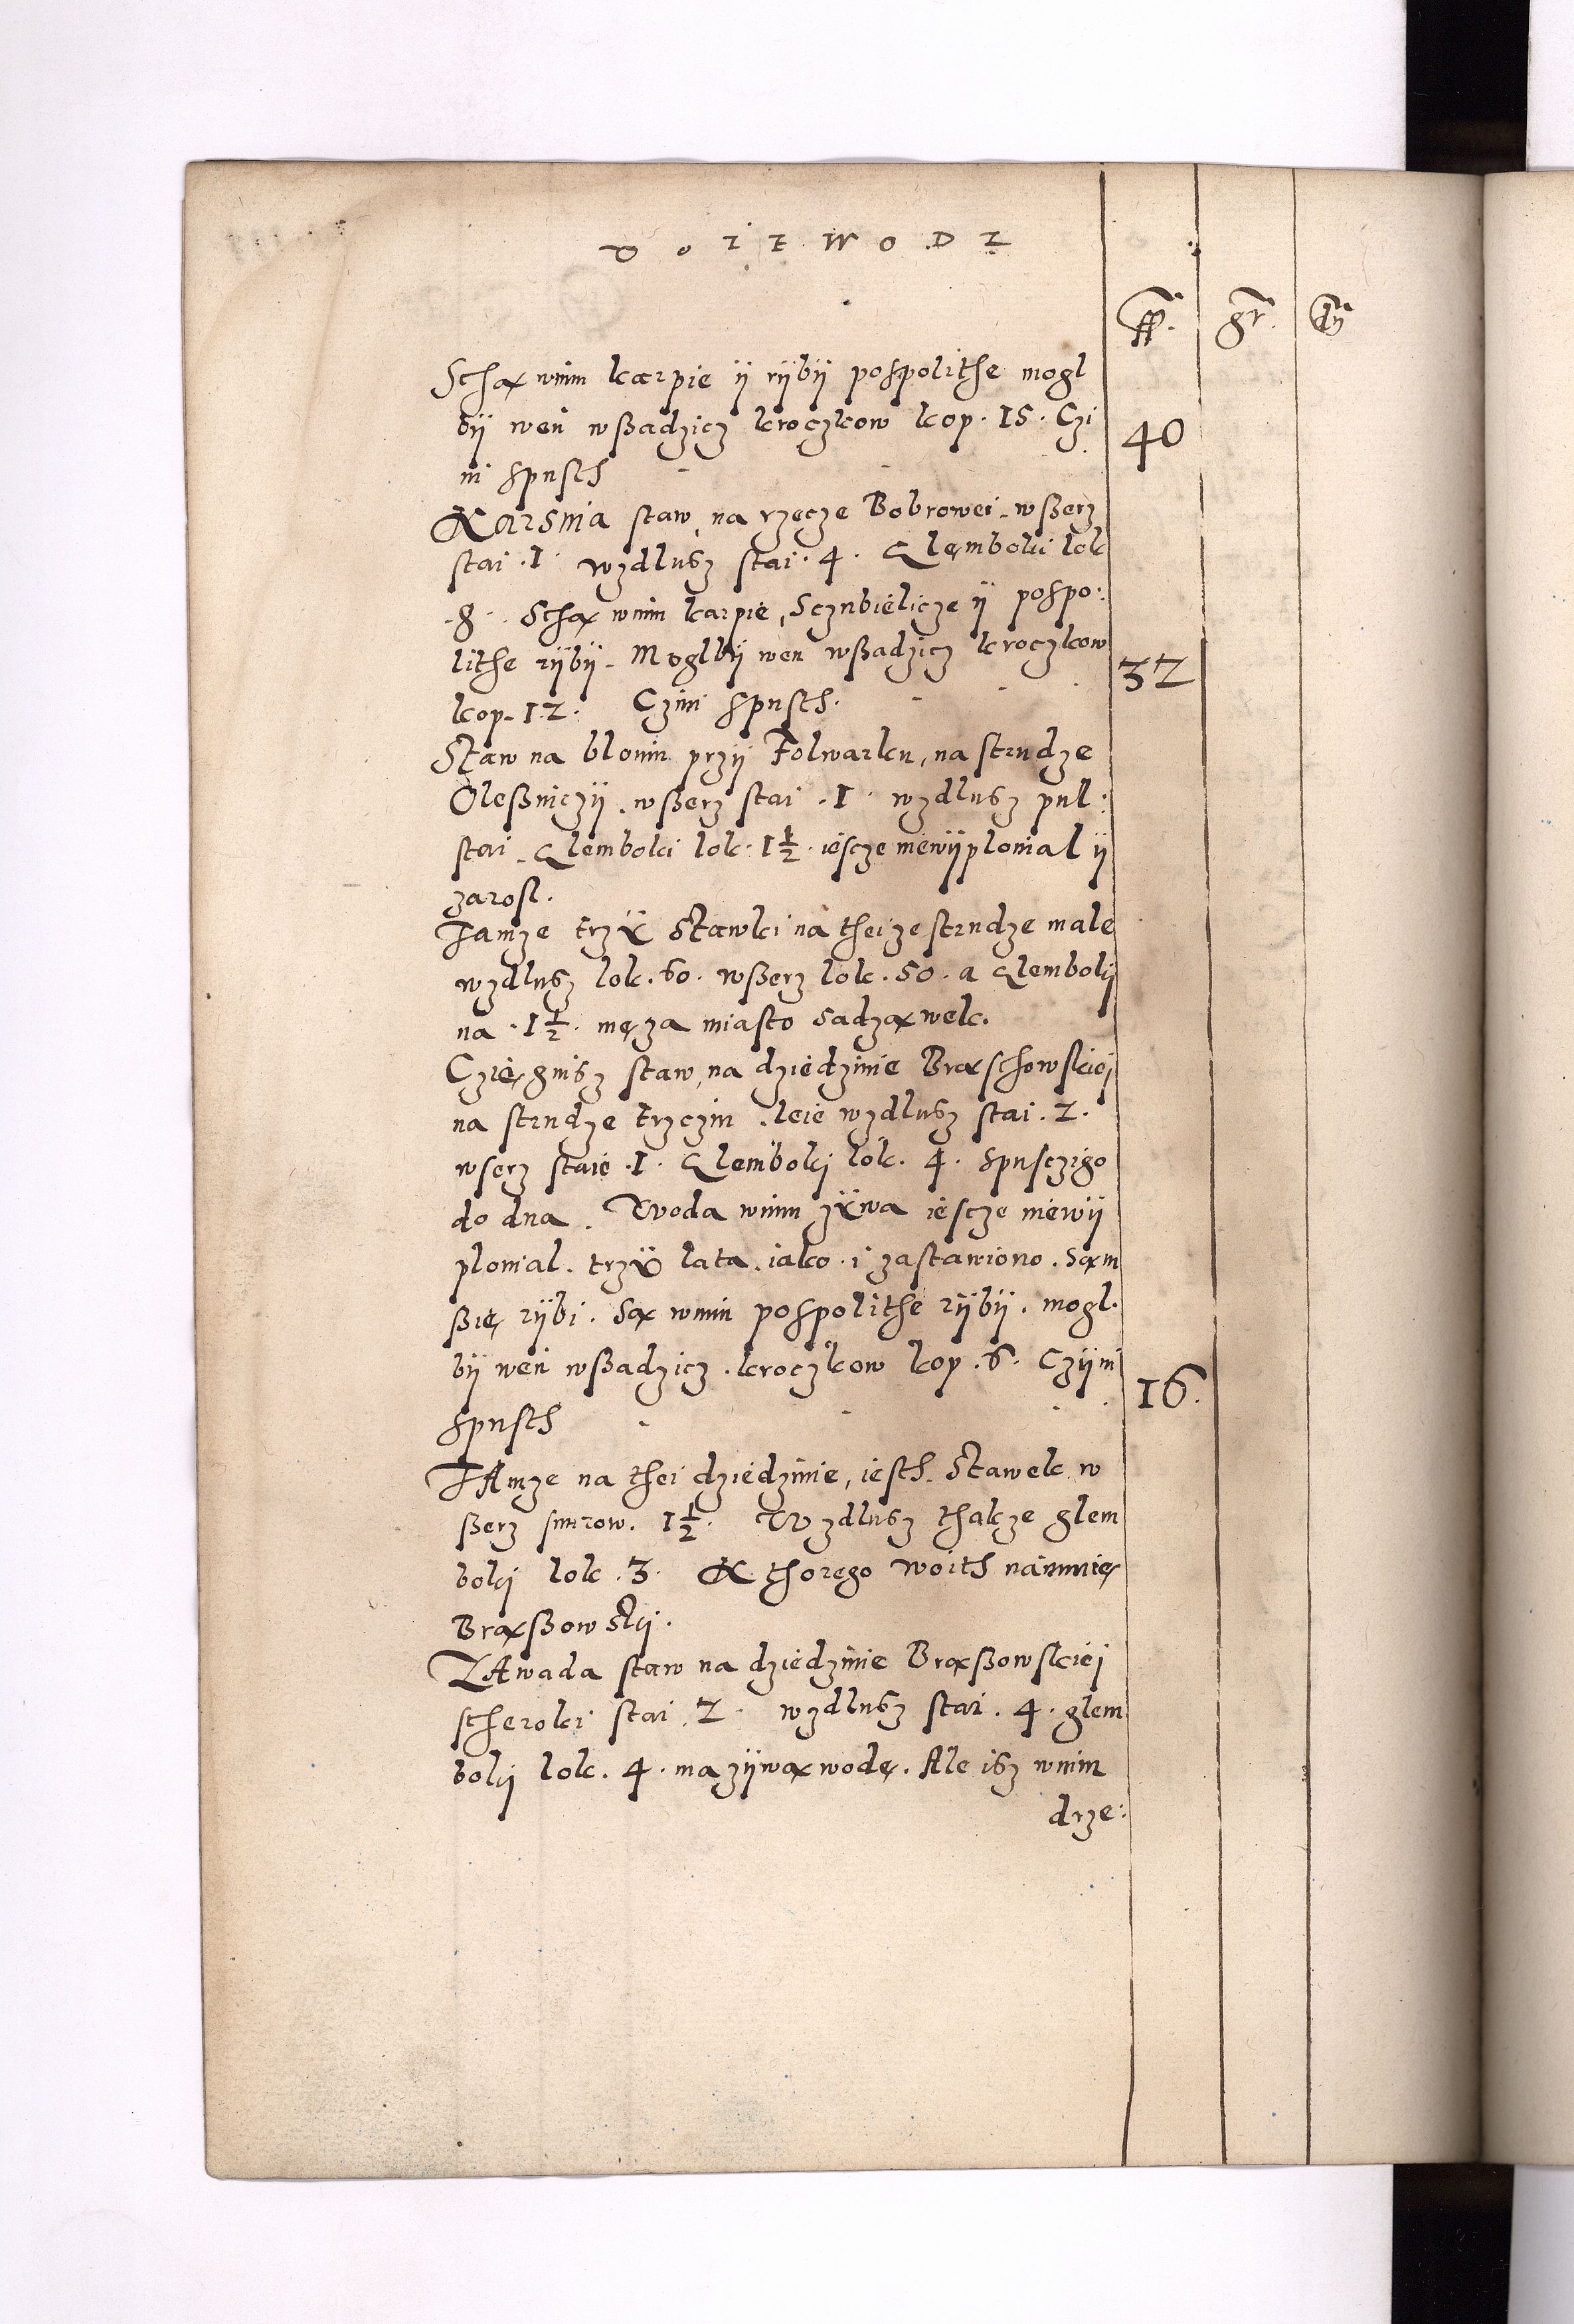 ff. gr. d
Schą wnim karpie ÿ rÿbÿ pospolithe mogl
bÿ weń wßadzicz kroczkow kop. 15. Czi 40
ni spusth
Karsnia staw, na rzęcze Bobrowei. wßerz
stai. 1. wzdlusz stai. 4. Glęmboki lok
.8. Schą wnim karpie, Sczubielicze ÿ pospo:
lithe rÿbÿ. Moglbÿ wen wßadzicz kroczkow 32
kop. 12. Czini spusth.
Staw na bloniu przÿ Folwarku, na strudze
Oleßniczÿ. wßerz stai. 1. wzdlusz pul:
stai. Glemboki lok. 1½. iescze niewÿplonial ÿ
zarosl.
Tamze trzÿ Stawki na theize strudze male
wzdlusz lok. 60. wßerz lok. 50. a Glembokj
na. 1½. mę za miasto sadzawek.
Czięgnisz staw, na dziedzinie Brąschowskiej
na strudze trzczin. leie wzdlusz stai. 2.
wserz staie. 1. Glembokj lok. 4. spusczigo
do dna. Woda wnim zÿwa iescze niewÿ
plonial. trzÿ lata. iako. i zastawiono. sąm
ßię rÿbi. Są wnim pospolithe rÿbÿ. mogl.
bÿ weń wßadzicz. kroczkow kop. 6. Czÿni 16.
spusth
TAmze na thei dziedzinie, iesth. Stawek w
ßerz snurow. 1½. Wzdlusz thakze glem
bokj lok. 3. Kthorego woith naimuię
Brąßowskj.
ZAwada staw na dziedzinie Brąßowskiej
scheroki stai. 2. wzdlusz stai. 4. glem
bokj lok. 4. ma zÿwą wodę. Ale isz wnim
drze: